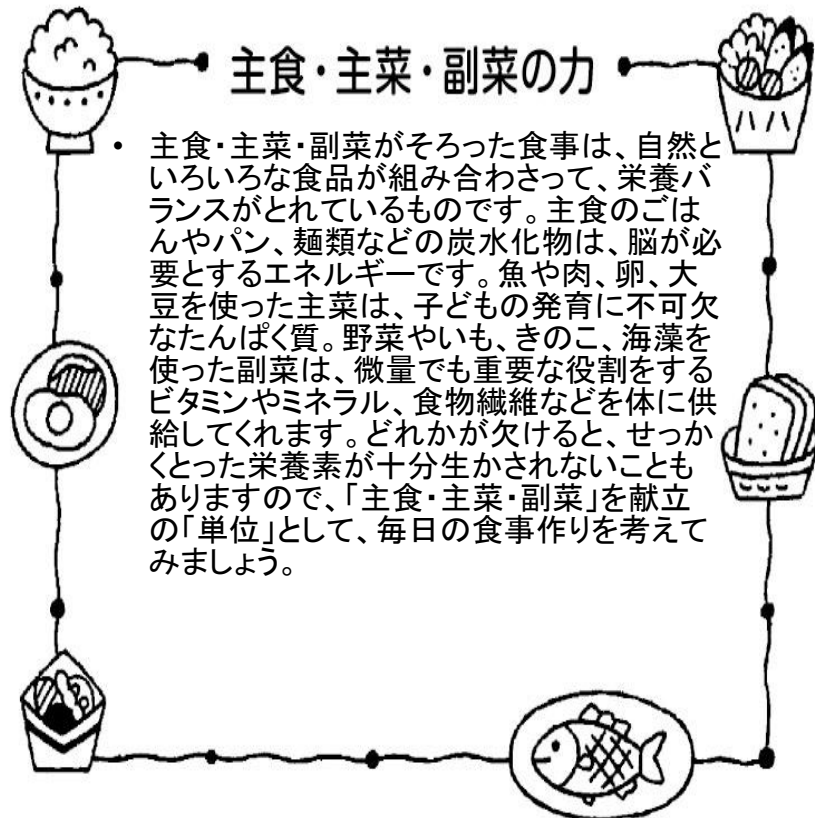 主食・主菜・副菜の力
• 主食・主菜・副菜がそろった食事は、自然と
いろいろな食品が組み合わさって、栄養バ
ランスがとれているものです。主食のごは
んやパン、麺類などの炭水化物は、脳が必
要とするエネルギーです。魚や肉、卵、大
豆を使った主菜は、子どもの発育に不可欠
なたんぱく質。野菜やいも、きのこ、海藻を
使った副菜は、微量でも重要な役割をする
ビタミンやミネラル、食物繊維などを体に供
給してくれます。どれかが欠けると、せっか
くとった栄養素が十分生かされないことも
ありますので、「主食・主菜・副菜」を献立
の「単位」として、毎日の食事作りを考えて
みましょう。